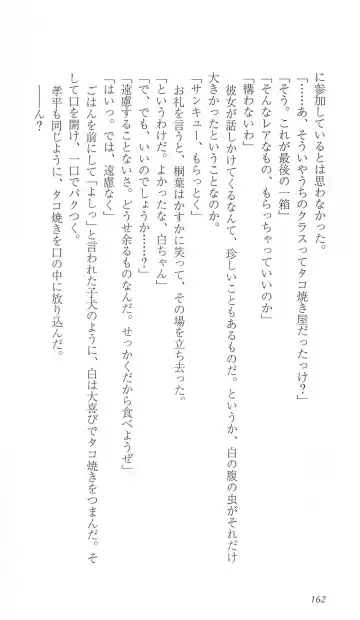 に参加しているとは思わなかった。
「……あ、そういやうちのクラスってタコ焼き屋だったっけ?」
「そう。これが最後の一箱」
「そんなレアなもの、もらっちゃっていいのか」
「構わないわ」
彼女が話しかけてくるなんて、珍しいこともあるものだ。というか、白の腹の虫がそれだけ
大きかったということなのか。
「サンキュー、もらっとく」
お礼を言うと、桐葉はかすかに笑って、その場を立ち去った。
「というわけだ。よかったな、白ちゃん」
「で、でも、いいのでしょうか……?」
「遠慮することないさ。どうせ余るものなんだ。せっかくだから食べようぜ」
「はいっ。では、遠慮なく」
ごはんを前にして「よしっ」と言われた子犬のように、白は大喜びでタコ焼きをつまんだ。そ
して口を開け、一口でパクつく。
孝平も同じように、タコ焼きを口の中に放り込んだ。
――ん?
162